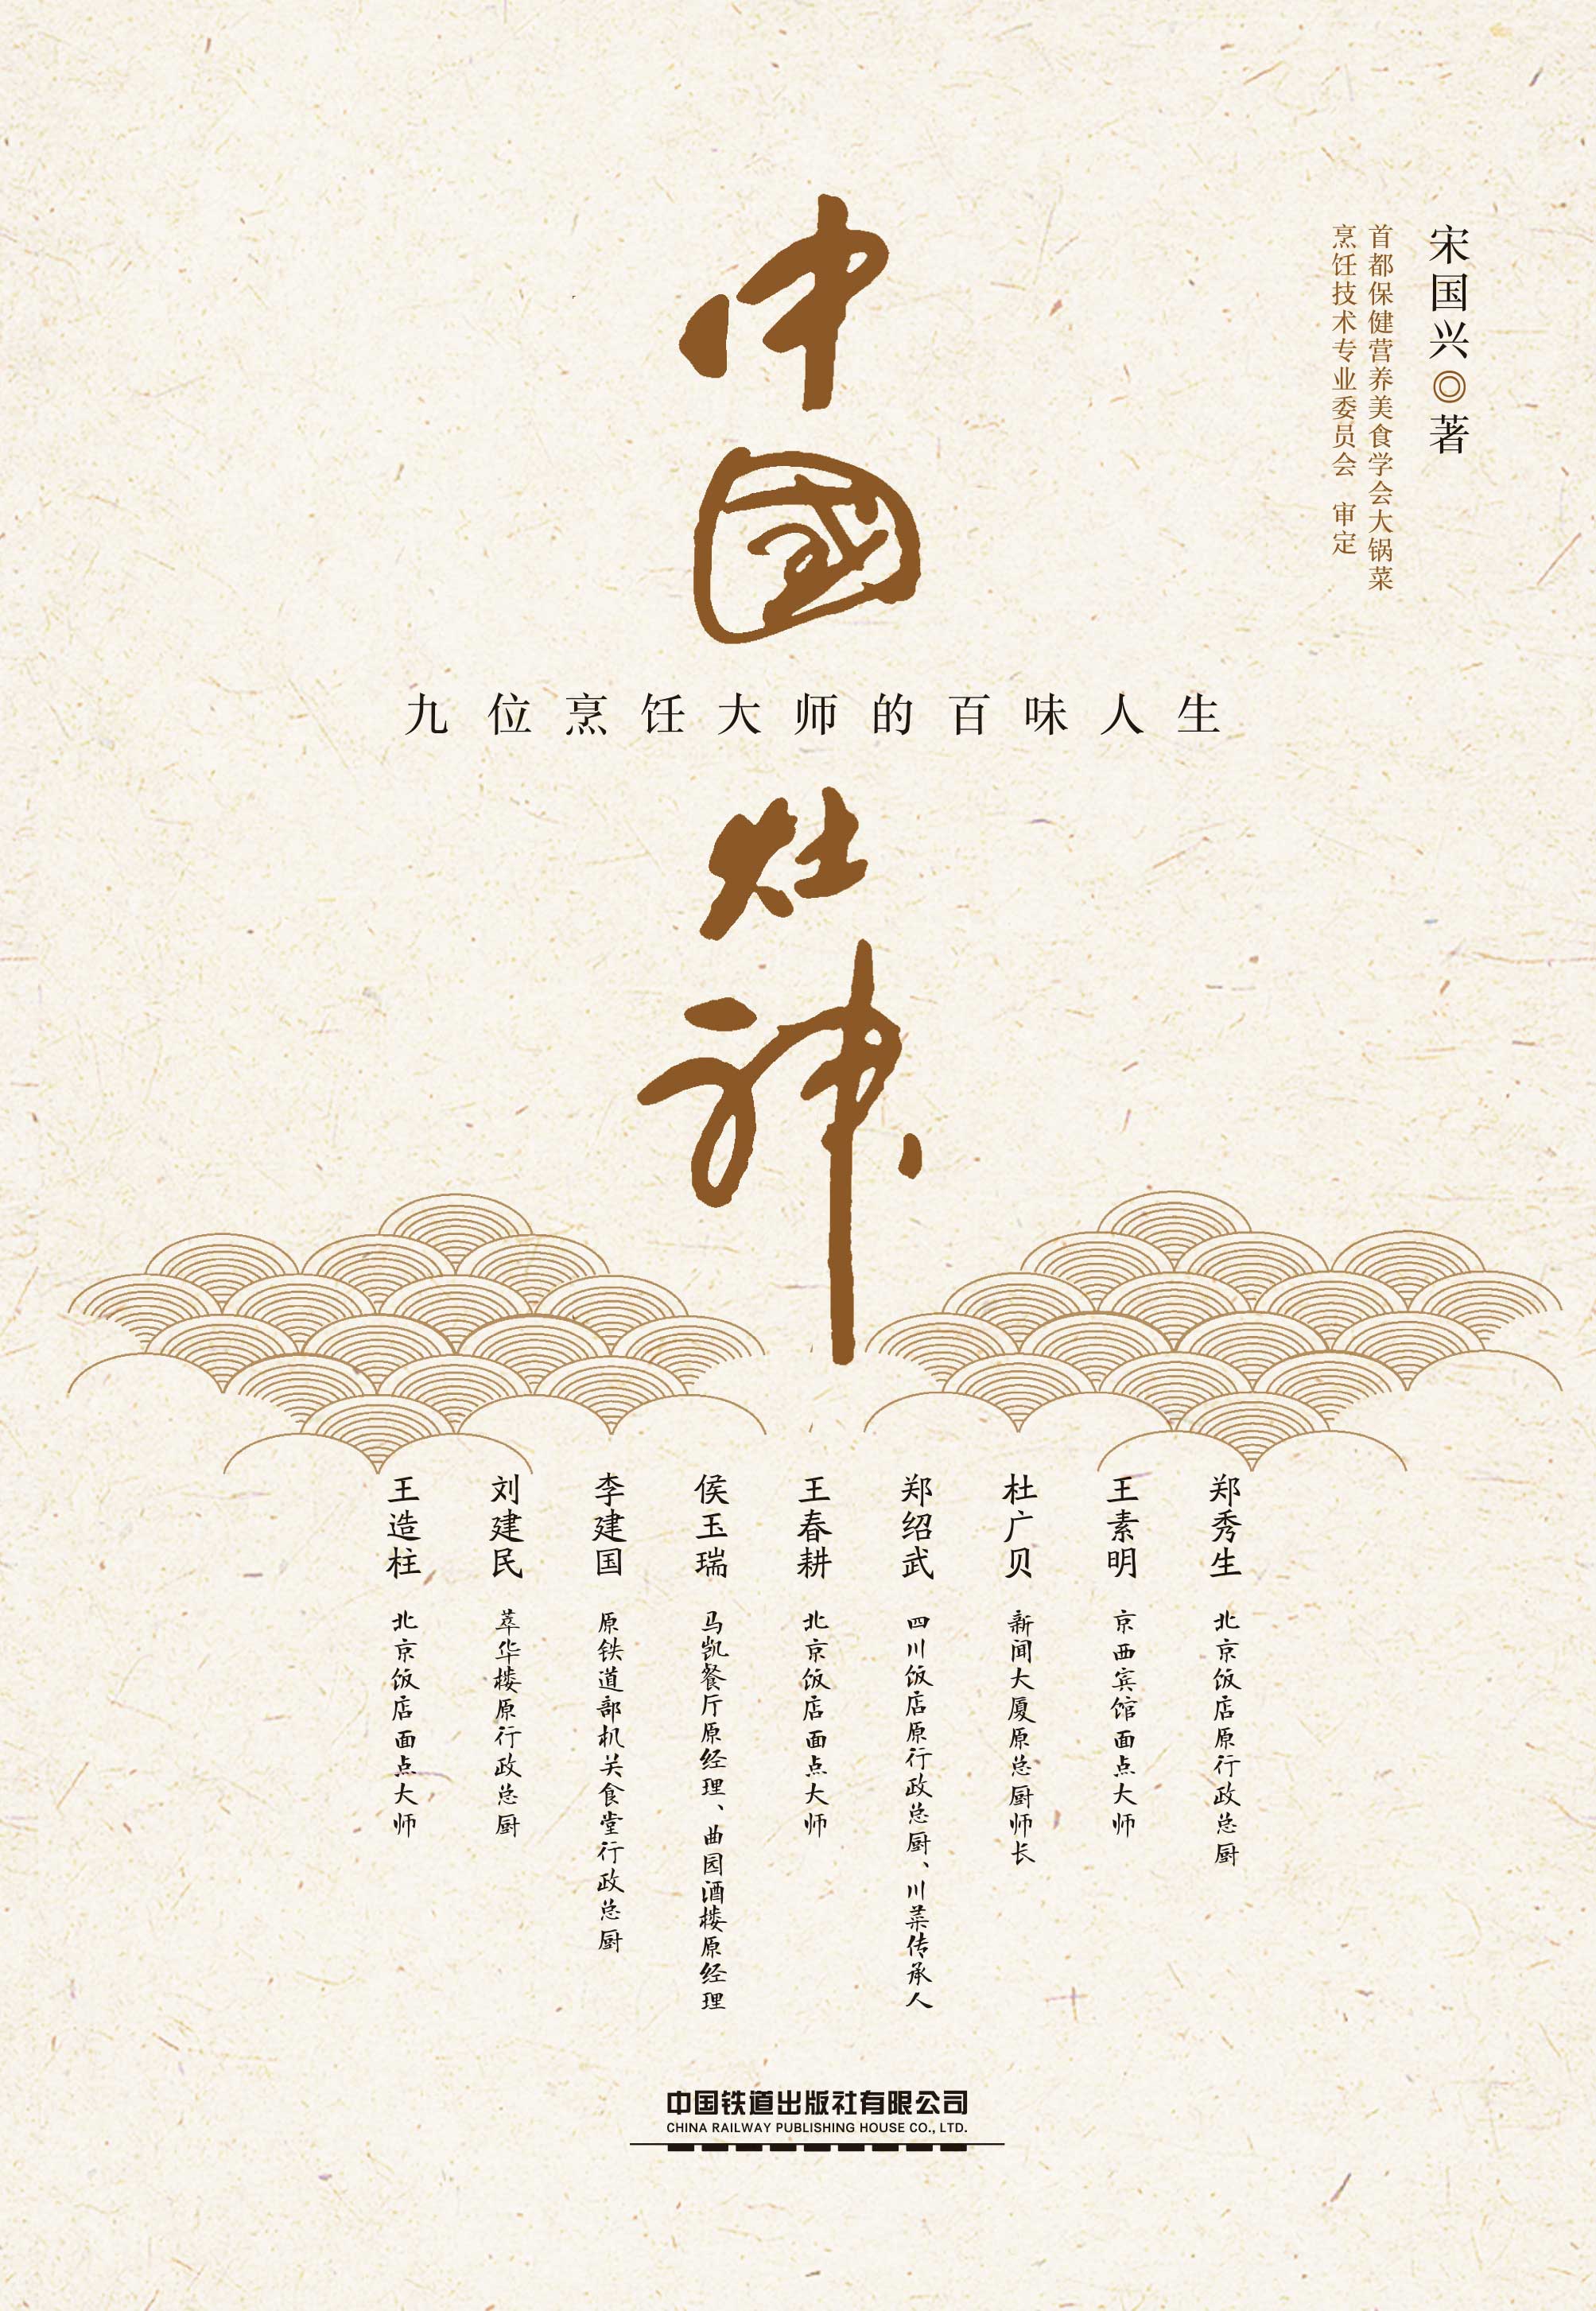 宋国兴◎著
首都保健营养美食学会大锅菜
烹饪技术专业委员会 审定
中國
九位烹饪大师的百味人生
灶神
郑秀生 北京饭店原行政总厨
王素明 京西宾馆面点大师
杜广贝 新闻大厦原总厨师长
郑绍武 四川饭店原行政总厨、川菜传承人
王春耕 北京饭店面点大师
侯玉瑞 马凯餐厅原经理、曲园酒楼原经理
李建国 原铁道部机关食堂行政总厨
刘建民 萃华楼原行政总厨
王造柱 北京饭店面点大师
中国铁道出版社有限公司
CHINA RAILWAY PUBLISHING HOUSE CO., LTD.